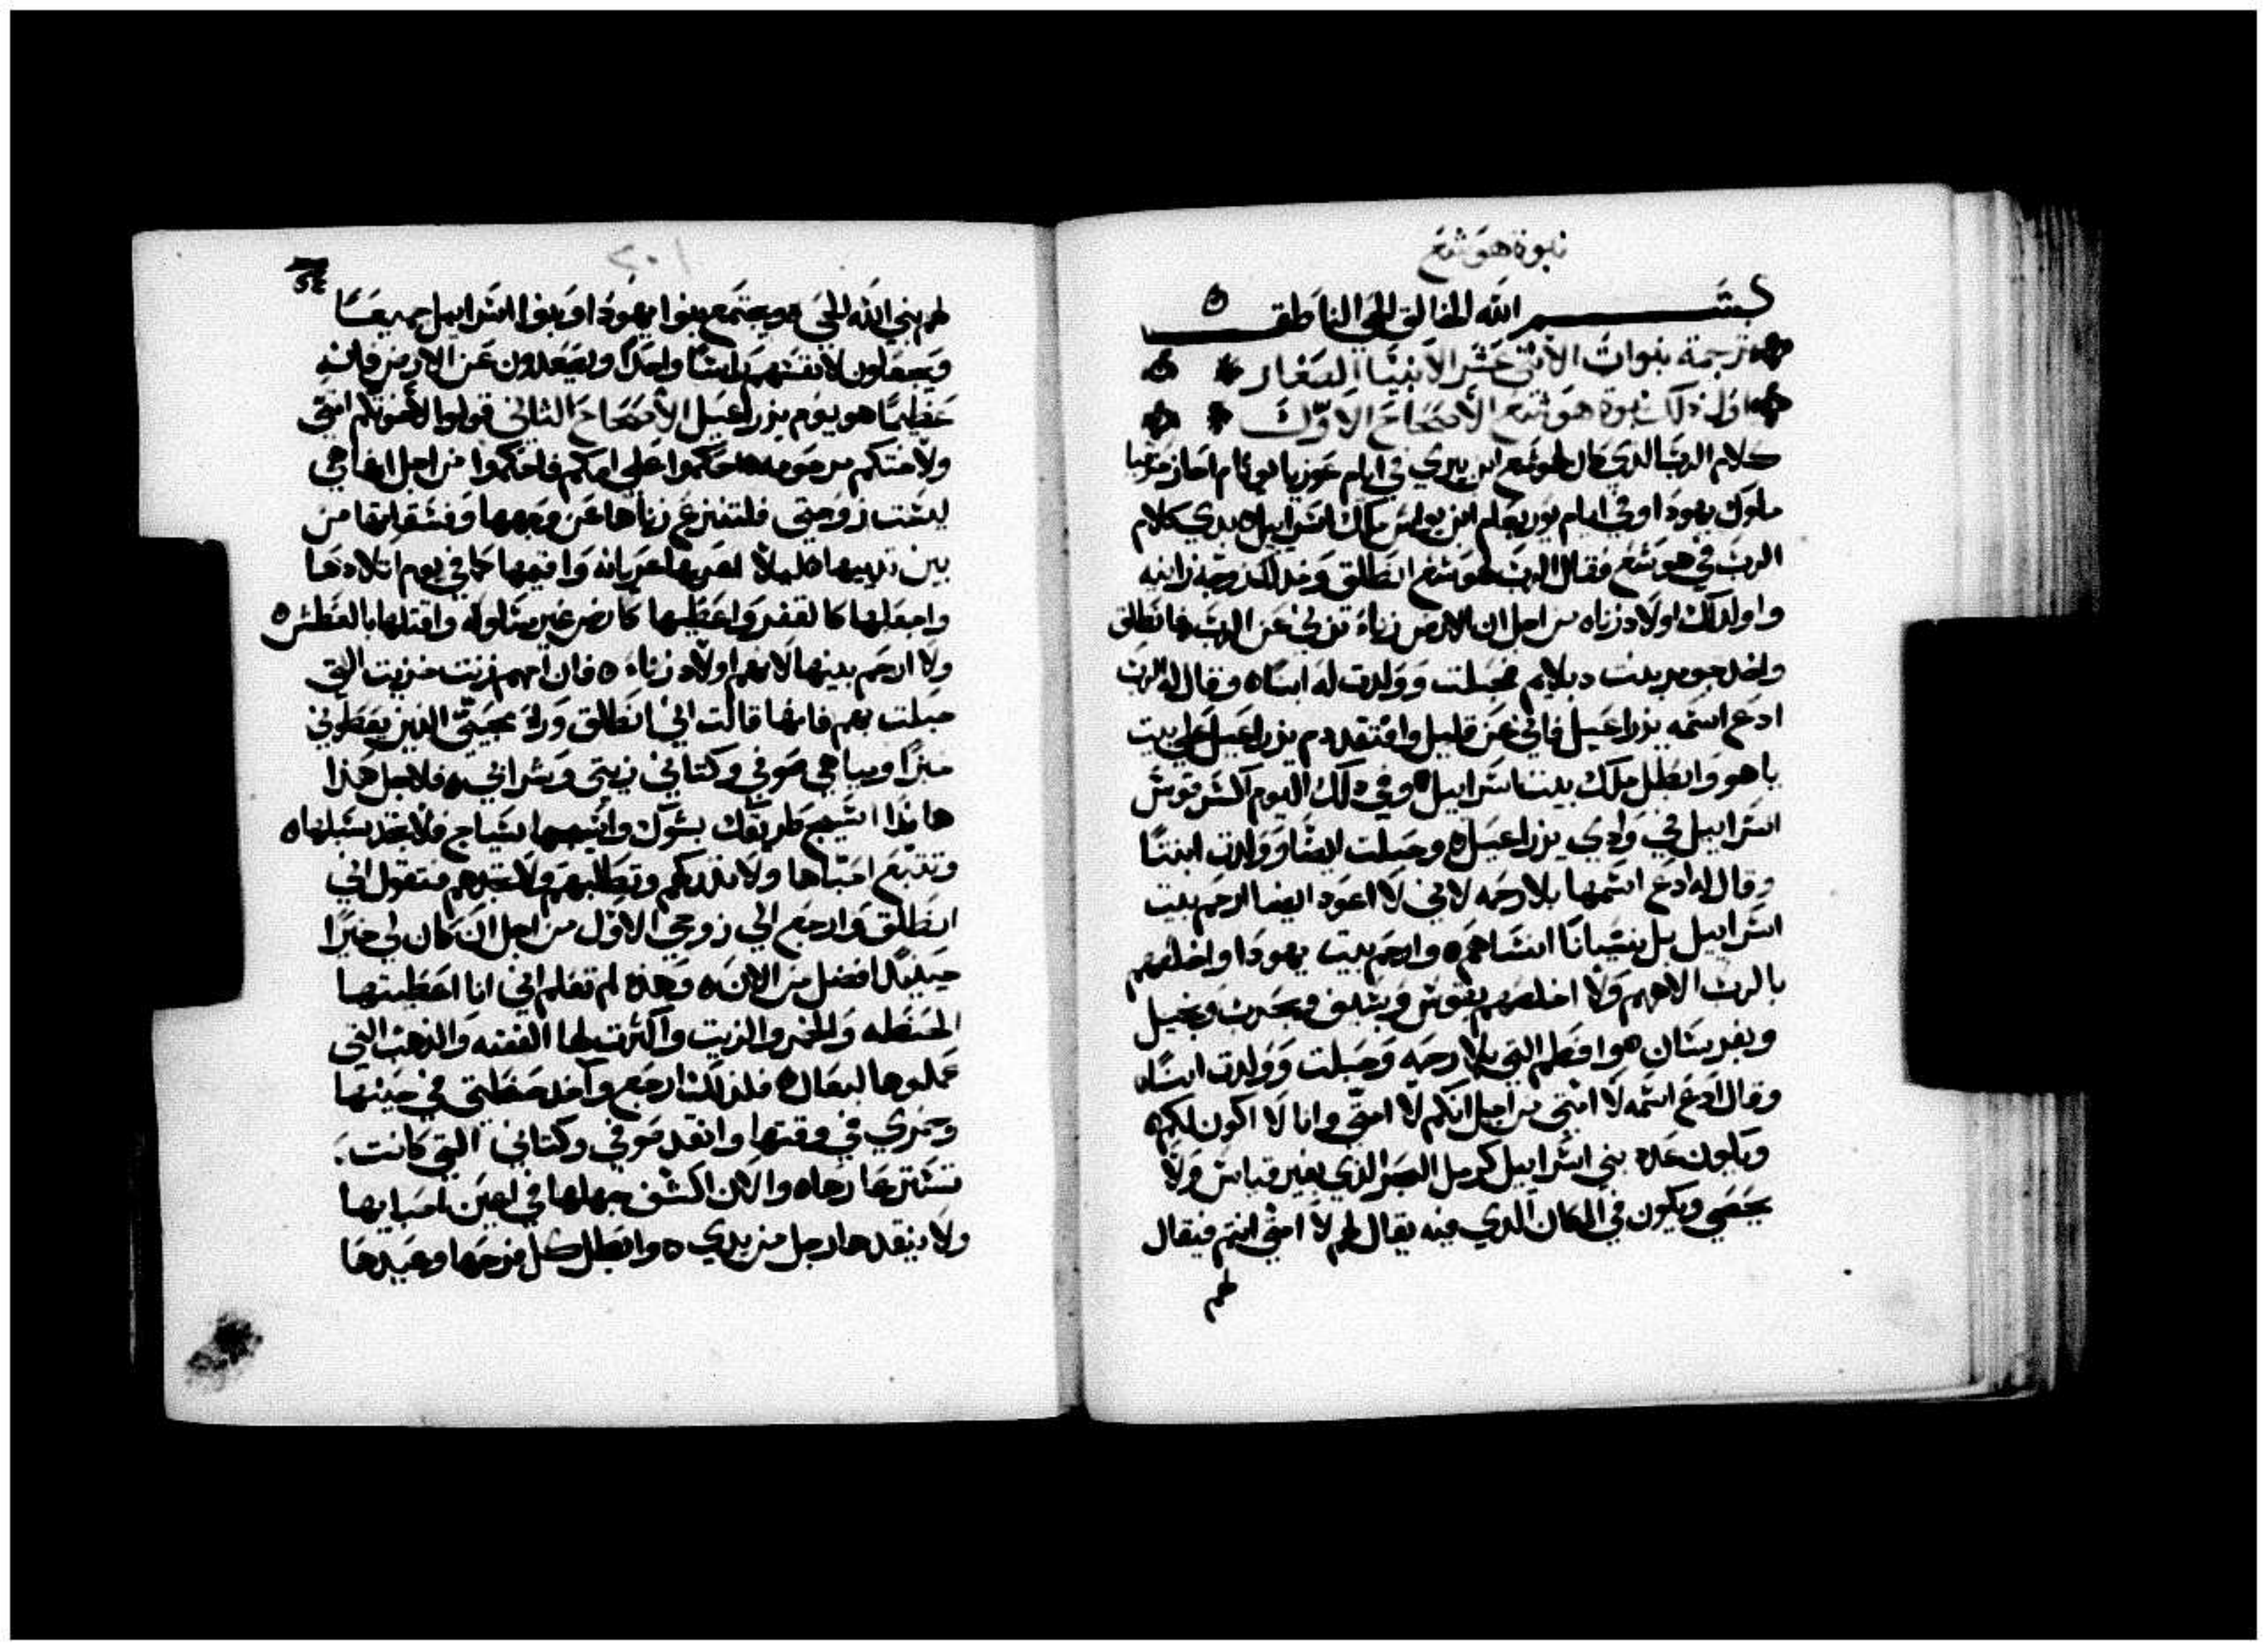 نبوة هوشع
بسم الله الخالق الحي الناطق
ترجمة نبوات الاثني عشر الانبيا الصغار
اول ذلك نبوة هوشع الاصحاح الاول
كلام الرب الذي كان لهوشع ابن بيري في ايام عوزيا يوثام احاز حزقيا
ملوك يهودا وفي ايام يوربعام ابن يواش ملك اسراييل بدي كلام
الرب في هوشع فقال الرب لهوشع انطلق وخد لك زوجه زانيه
واولد لك اولاد زناه من اجل ان الارض زناة تزني عن الرب فانطلق
واخد جومر بنت دبلايم فحبلت وولدت له ابنا وقال له الرب
ادع اسمه يزراعيل فاني عن قليل وافتقد دم يزراعيل علي بيت
ياهو وابطل ملك بيت اسراييل وفي ذلك اليوم اكسر قوس
اسراييل في وادي يزراعيل وحبلت ايضا وولدت ابنتا
وقال له ادع اسمها بلا رحمه لاني لا اعود ايضا ارحم بيت
اسراييل بل نسيانا انساهم وارحم بيت يهودا واخلصهم
بالرب الاههم ولا اخلصهم بقوس وبسيف وبحرب وبخيل
وبفرسان هوا فطم التي بلا رحمه وحبلت وولدت ابنا
وقال ادع اسمه لا امتي من اجل انكم لا امتي وانا لا اكون لكم
ويكون عدد بني اسراييل كرمل البحر الذي بغير قياس ولا
يحصي ويكون في المكان الذي فيه يقال لهم لا امتي انتم فيقال
لهم
٢٠١
لهم بني الله الحي ويجتمع بنوا يهودا وبنوا اسراييل جميعا
ويجعلون لانفسهم راسا واحدا ويصعدون عن الارض فانه
عظيما هو يوم يزراعيل الاصحاح الثاني قولوا لاخوتكم امتي
ولاختكم مرحومه حاكموا علي امكم فاحكموا من اجل انها هي
ليست زوجتي فلتنزع زناها عن وجهها وفسقها من
بين ثدييها ليلا اعريها عريانه واقيمها كما في يوم اتلادها
واجعلها كالقفر واعطيها كارض غير مسلوكه واقتلها بالعطش
ولا ارحم بنيها لانهم اولاد زناه فان امهم زنت خزيت التي
حبلت بهم فانها قالت اني انطلق وراء محبيني الذين يعطوني
خبزا ومياهي صوفي وكتاني زيتي وشرابي فلاجل هذا
هانذا اسيج طريقك بشوك واسيجها بسياج فلا تجد سبلها
وتتبع احباها ولا تدركهم وتطلبهم ولا تجدهم فتقول اني
انطلق وارجع الي زوجي الاول من اجل ان كان لي خيرا
حينيذ افضل من الان وهذه لم تعلم اني انا اعطيتها
الحنطه والخمر والزيت واكثرت لها الفضه والذهب التي
عملوها لبعال فلذلك ارجع وآخد حنطتي في حينها
وخمري في وقتها وانقد صوفي وكتاني التي كانت
تستر عارها والان اكشف جهلها في اعين احبايها
ولا ينقدها رجل من يدي وابطل كل فرحها وعيدها